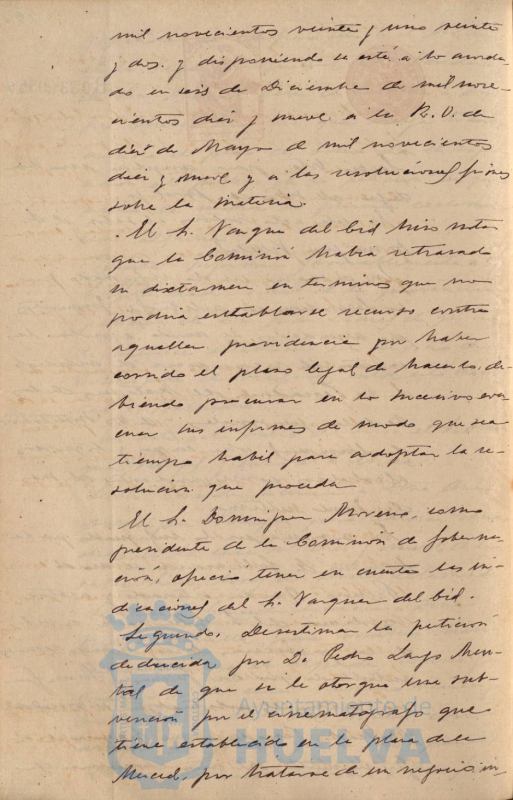 mil novecientos veinte y uno veinte
y dos. y disponiendo se esté a lo acorda-
do en seis de Diciembre de mil nove-
cientos diez y nueve a la R. O. de
diez de Mayo de mil novecientos
diez y nueve y a las resoluciones
sobre la materia.
El Sr. Vazquez del Cid hizo notar
que la Comisión había retrasado
su dictamen en terminos que no
podria establecerse recurso contra
aquella providencia por haber
corrido el plazo legal de hacerlo, de-
biendo procurar en lo sucesivo eva-
cuar sus informes de modo que sea
tiempo habil para adoptar la re-
solucion que proceda
El Sr. Dominguez Moreno, como
presidente de la Comisión de Goberna-
ción, ofreció tener en cuenta las in-
dicaciones del Sr. Vazquez del Cid.
Segundo. Desestimar la petición
deducida por D. Pedro
de que se le otorgue una sub-
vención por el cinematógrafo que
tiene establecido en la plaza de la
Merced, por tratarse de un negocio in-
Ayuntamiento de
HUELVA